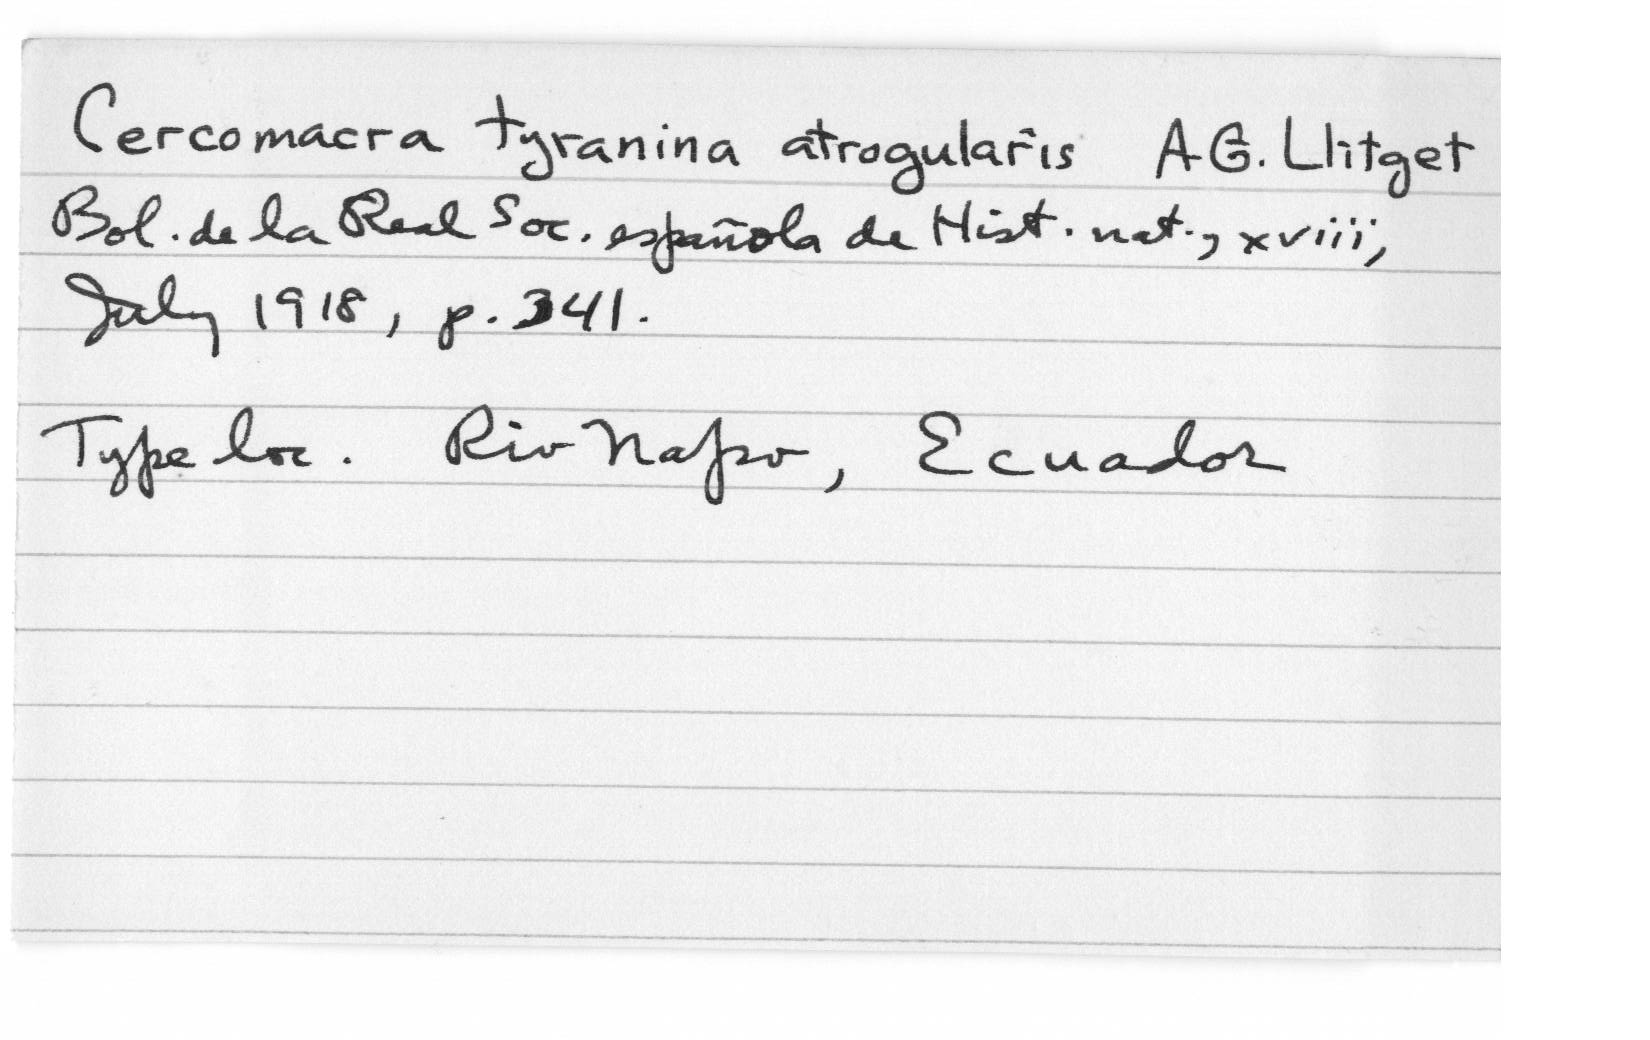 Cercomacra tyranina atrogularis A.G. Llitget
Bol. de la Real Soc. española de Hist. nat., xviii,
July 1918, p. 341.
Type loc. Rio Napo, Ecuador